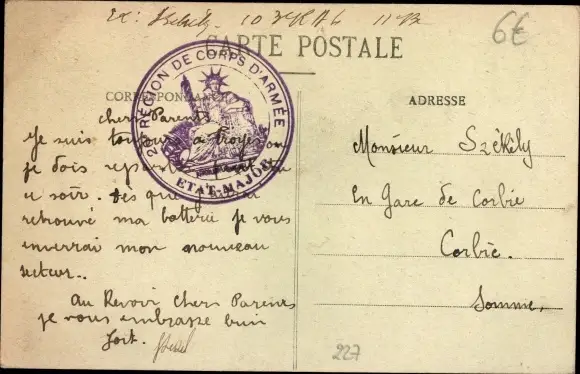 10
6€
CARTE POSTALE
CORRESPONDANCE
ADRESSE
2 RÉGION DE CORPS D'ARMÉE
ETAT-MAJOR
chers Parents
Je suis toujours a Troyes ou
je dois
soir. des que
retrouvé ma batterie je vous
enverrai mon nouveau
secteur..
Au Revoir chers Parents
je vous embrasse bien
fort.
Monsieur Székély
En Gare de Corbie
Corbie.
Somme.
227